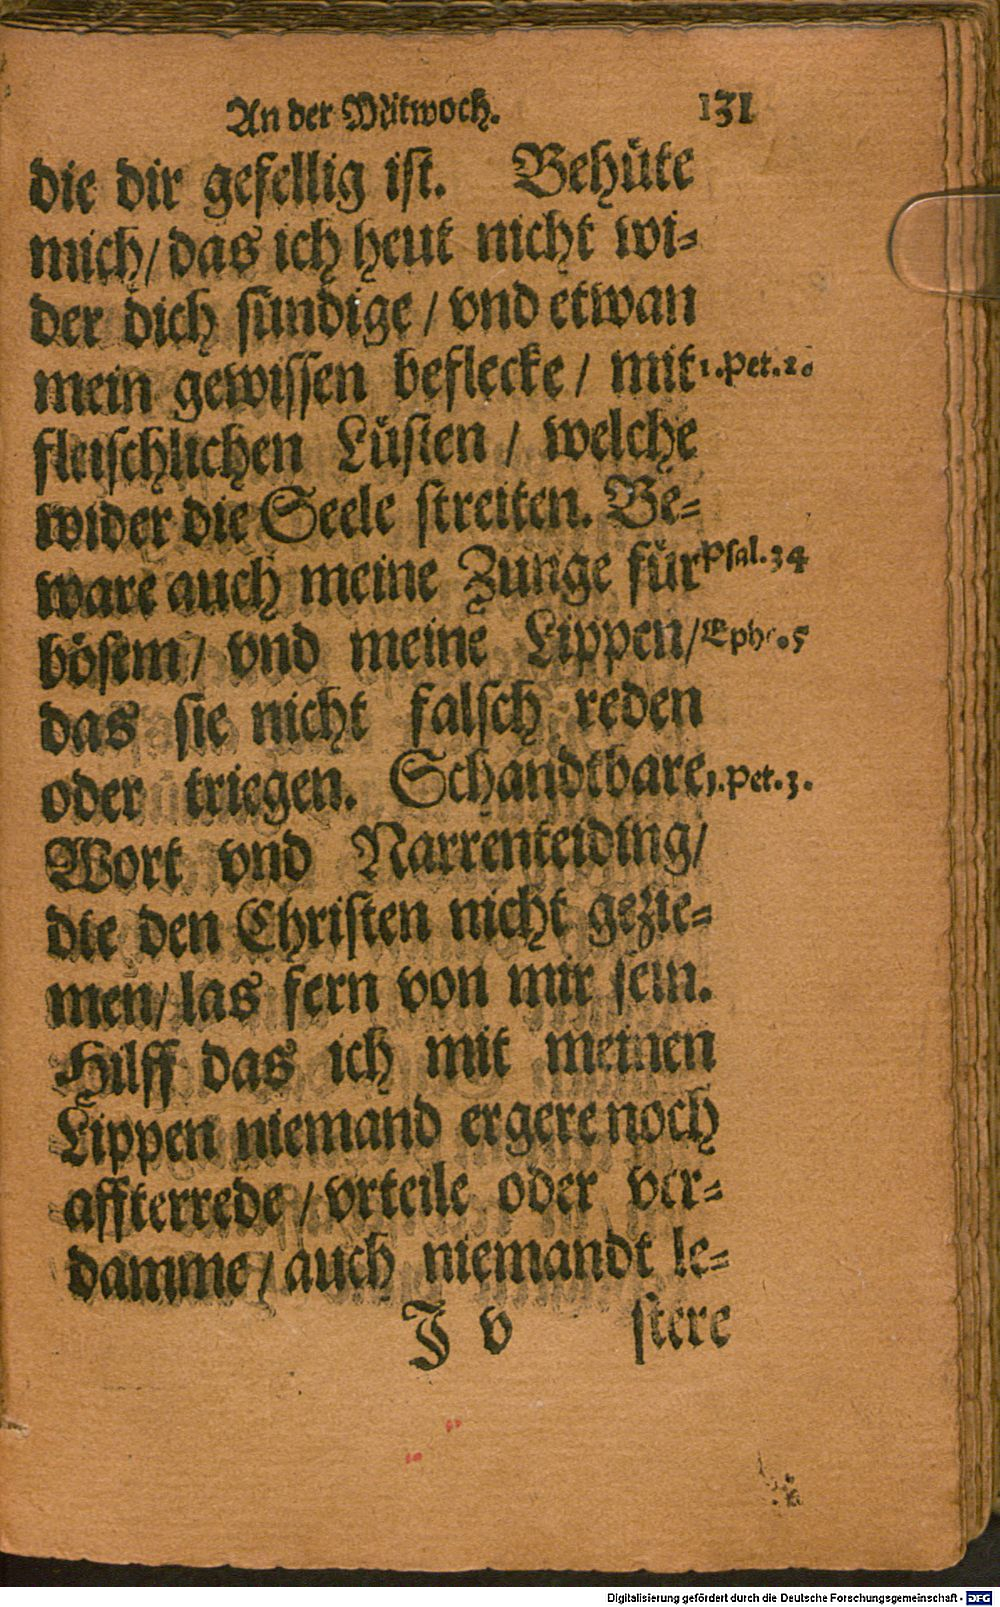 An der Mitwoch. 131
die dir gefellig ist. Behüte
mich/ das ich heut nicht wi-
der dich sündige / vnd etwan
mein gewissen beflecke / mit 1. Pet. 2.
fleischlichen Lüsten / welche
wider die Seele streiten. Be-
ware auch meine Zunge für Psal. 34
bösem / vnd meine Lippen/ Ephe. 5
das sie nicht falsch reden
oder triegen. Schandtbare 1. Pet. 3.
Wort vnd Narrenteiding/
die den Christen nicht gezie-
men/ las fern von mir sein.
Hilff das ich mit meinen
Lippen niemand ergere noch
affterrede / vrteile oder ver-
damme / auch niemandt le-
J v stere
Digitalisierung gefördert durch die Deutsche Forschungsgemeinschaft - DFG